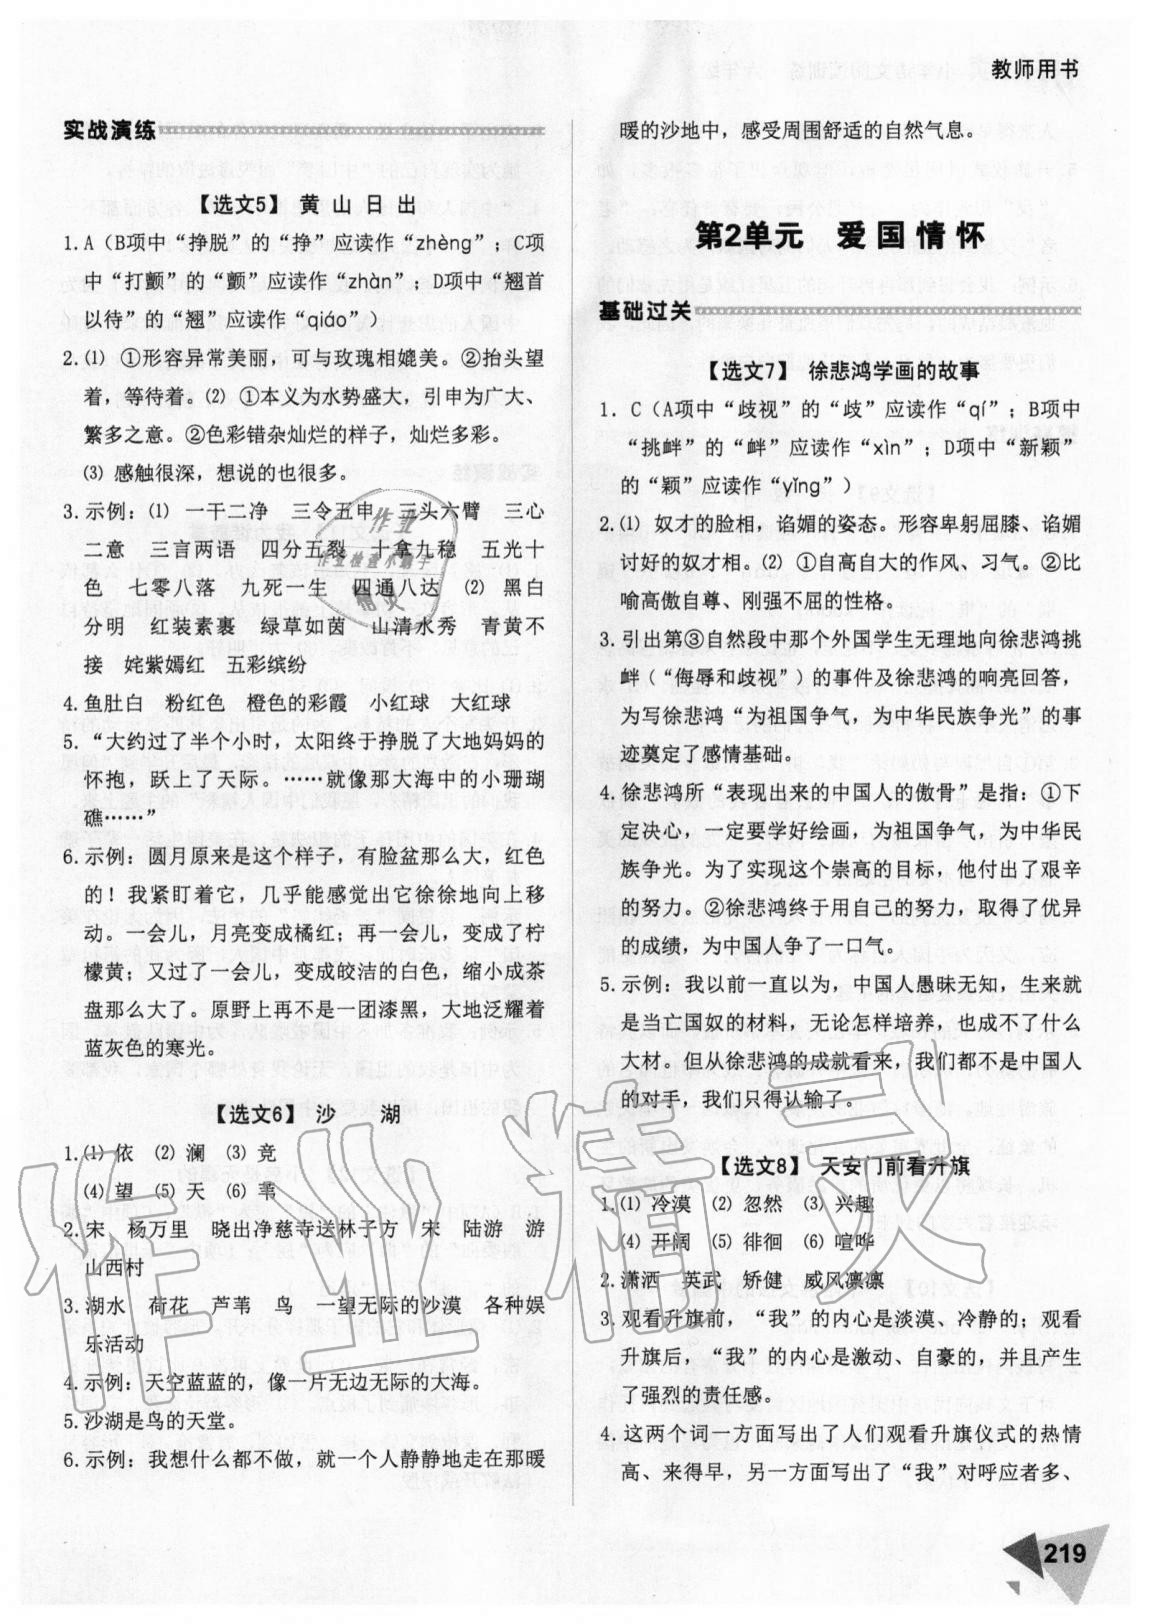 教师用书
实战演练
【选文5】 黄 山 日 出
1. A（B项中“挣脱”的“挣”应读作“zhèng”；C项
中“打颤”的“颤”应读作“zhàn”；D项中“翘首
以待”的“翘”应读作“qiáo”）
2. ⑴ ①形容异常美丽，可与玫瑰相媲美。②抬头望
着，等待着。⑵ ①本义为水势盛大，引申为广大、
繁多之意。②色彩错杂灿烂的样子，灿烂多彩。
⑶ 感触很深，想说的也很多。
3. 示例：⑴ 一干二净 三令五申 三头六臂 三心
二意 三言两语 四分五裂 十拿九稳 五光十
色 七零八落 九死一生 四通八达 ⑵ 黑白
分明 红装素裹 绿草如茵 山清水秀 青黄不
接 姹紫嫣红 五彩缤纷
4. 鱼肚白 粉红色 橙色的彩霞 小红球 大红球
5. “大约过了半个小时，太阳终于挣脱了大地妈妈的
怀抱，跃上了天际。……就像那大海中的小珊瑚
礁……”
6. 示例：圆月原来是这个样子，有脸盆那么大，红色
的！我紧盯着它，几乎能感觉出它徐徐地向上移
动。一会儿，月亮变成橘红；再一会儿，变成了柠
檬黄；又过了一会儿，变成皎洁的白色，缩小成茶
盘那么大了。原野上再不是一团漆黑，大地泛耀着
蓝灰色的寒光。
【选文6】 沙 湖
1. ⑴ 依 ⑵ 澜 ⑶ 竞
⑷ 望 ⑸ 天 ⑹ 苇
2. 宋 杨万里 晓出净慈寺送林子方 宋 陆游 游
山西村
3. 湖水 荷花 芦苇 鸟 一望无际的沙漠 各种娱
乐活动
4. 示例：天空蓝蓝的，像一片无边无际的大海。
5. 沙湖是鸟的天堂。
6. 示例：我想什么都不做，就一个人静静地走在那暖
暖的沙地中，感受周围舒适的自然气息。
第2单元 爱国情怀
基础过关
【选文7】 徐悲鸿学画的故事
1. C（A项中“歧视”的“歧”应读作“qí”；B项中
“挑衅”的“衅”应读作“xìn”；D项中“新颖”
的“颖”应读作“yǐng”）
2. ⑴ 奴才的脸相，谄媚的姿态。形容卑躬屈膝、谄媚
讨好的奴才相。⑵ ①自高自大的作风、习气。②比
喻高傲自尊、刚强不屈的性格。
3. 引出第③自然段中那个外国学生无理地向徐悲鸿挑
衅（“侮辱和歧视”）的事件及徐悲鸿的响亮回答，
为写徐悲鸿“为祖国争气，为中华民族争光”的事
迹奠定了感情基础。
4. 徐悲鸿所“表现出来的中国人的傲骨”是指：①下
定决心，一定要学好绘画，为祖国争气，为中华民
族争光。为了实现这个崇高的目标，他付出了艰辛
的努力。②徐悲鸿终于用自己的努力，取得了优异
的成绩，为中国人争了一口气。
5. 示例：我以前一直以为，中国人愚昧无知，生来就
是当亡国奴的材料，无论怎样培养，也成不了什么
大材。但从徐悲鸿的成就看来，我们都不是中国人
的对手，我们只得认输了。
【选文8】 天安门前看升旗
1. ⑴ 冷漠 ⑵ 忽然 ⑶ 兴趣
⑷ 开阔 ⑸ 徘徊 ⑹ 喧哗
2. 潇洒 英武 矫健 威风凛凛
3. 观看升旗前，“我”的内心是淡漠、冷静的；观看
升旗后，“我”的内心是激动、自豪的，并且产生
了强烈的责任感。
4. 这两个词一方面写出了人们观看升旗仪式的热情
高、来得早，另一方面写出了“我”对呼应者多、
219
作业
作业检查小助手
精灵
作业精灵